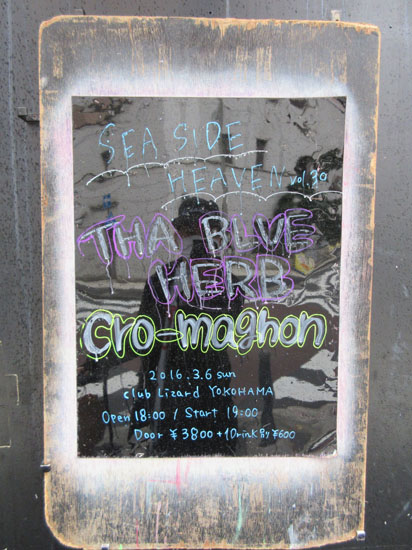 SEA SIDE
HEAVEN vol.30
THA BLUE
HERB
Cro-magnon
2016.3.6 sun
club Lizard YOKOHAMA
Open 18:00 / Start 19:00
Door ¥3800+1Drink By ¥600